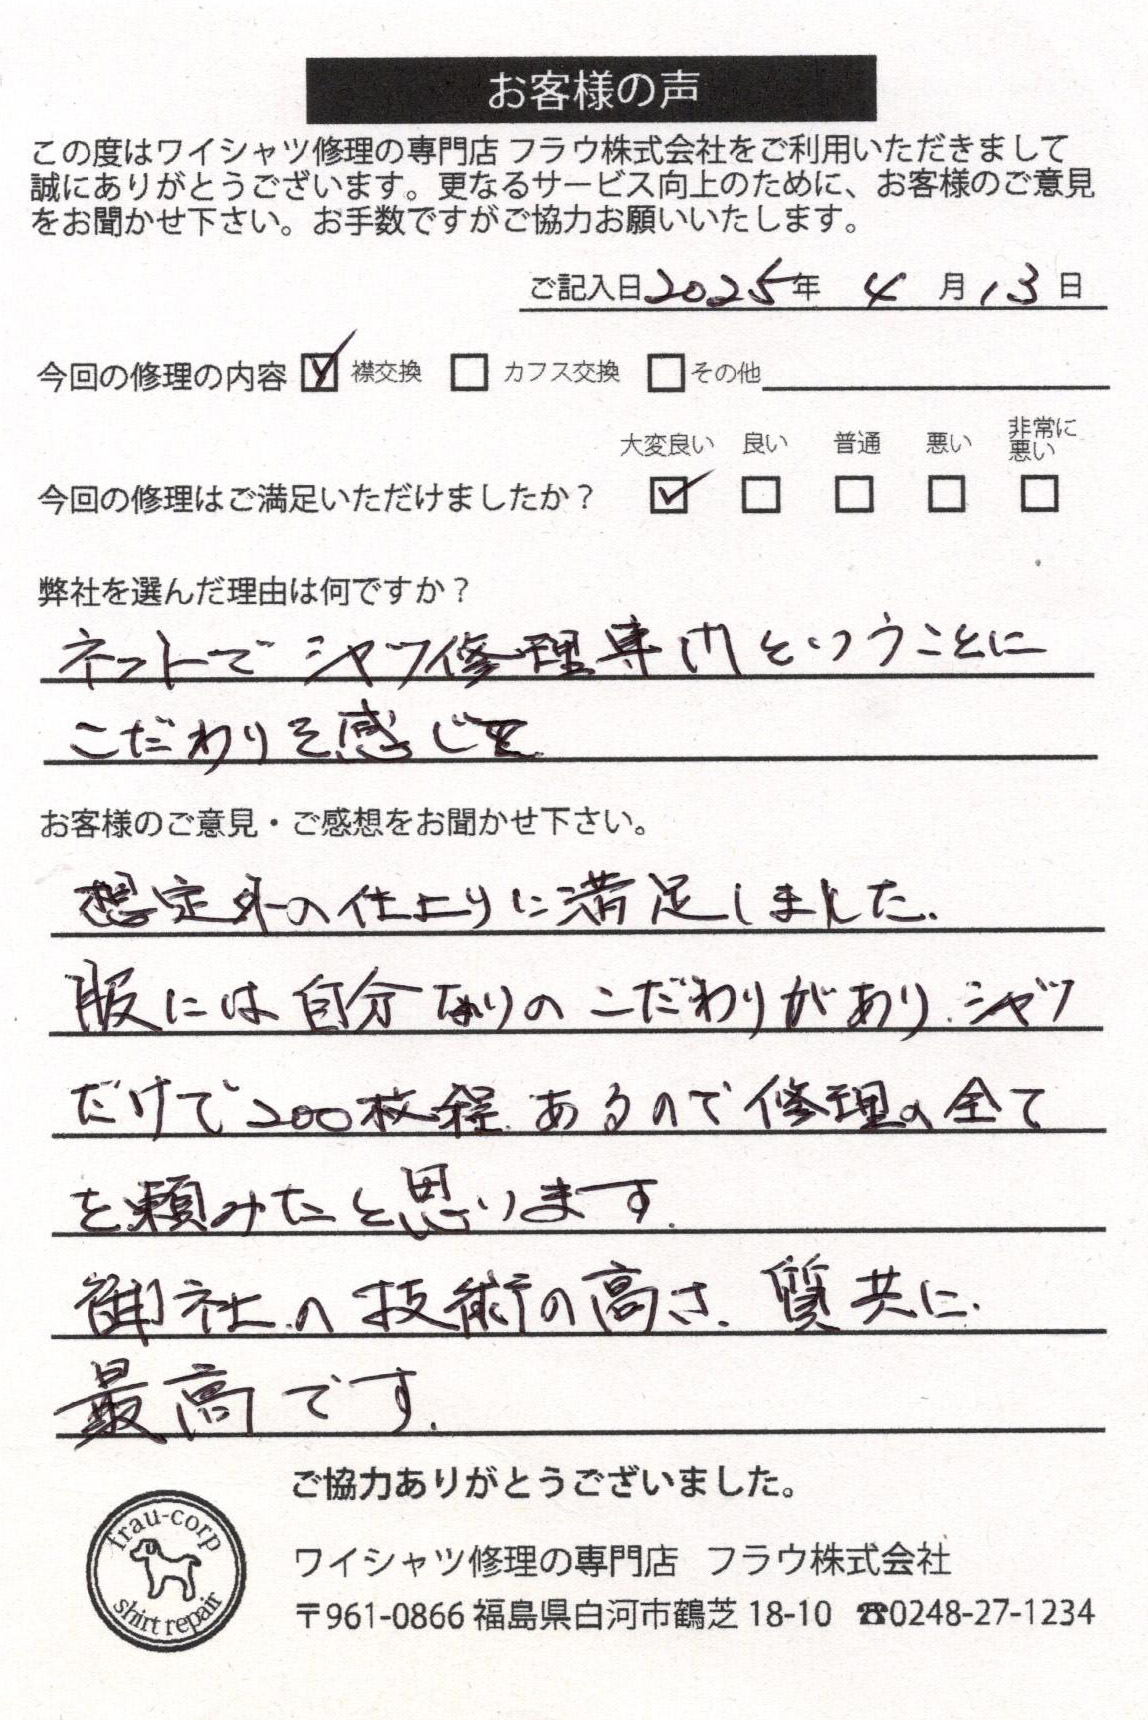 お客様の声
この度はワイシャツ修理の専門店 フラウ株式会社をご利用いただきまして
誠にありがとうございます。更なるサービス向上のために、お客様のご意見
をお聞かせ下さい。お手数ですがご協力お願いいたします。
ご記入日2025年 4 月13日
今回の修理の内容 ☑ 襟交換 □ カフス交換 □ その他
大変良い 良い 普通 悪い 非常に悪い
今回の修理はご満足いただけましたか? ☑ □ □ □ □
弊社を選んだ理由は何ですか?
ネットでシャツ修理専門ということに
こだわりを感じて
お客様のご意見・ご感想をお聞かせ下さい。
想定外の仕上りに満足しました.
服には自分なりのこだわりがあり.シャツ
だけで200枚程.あるので修理の全て
を頼みたいと思います.
御社の技術の高さ.質共に.
最高です.
ご協力ありがとうございました。
frau-corp
shirt repair
ワイシャツ修理の専門店 フラウ株式会社
〒961-0866 福島県白河市鶴芝 18-10 ☎0248-27-1234